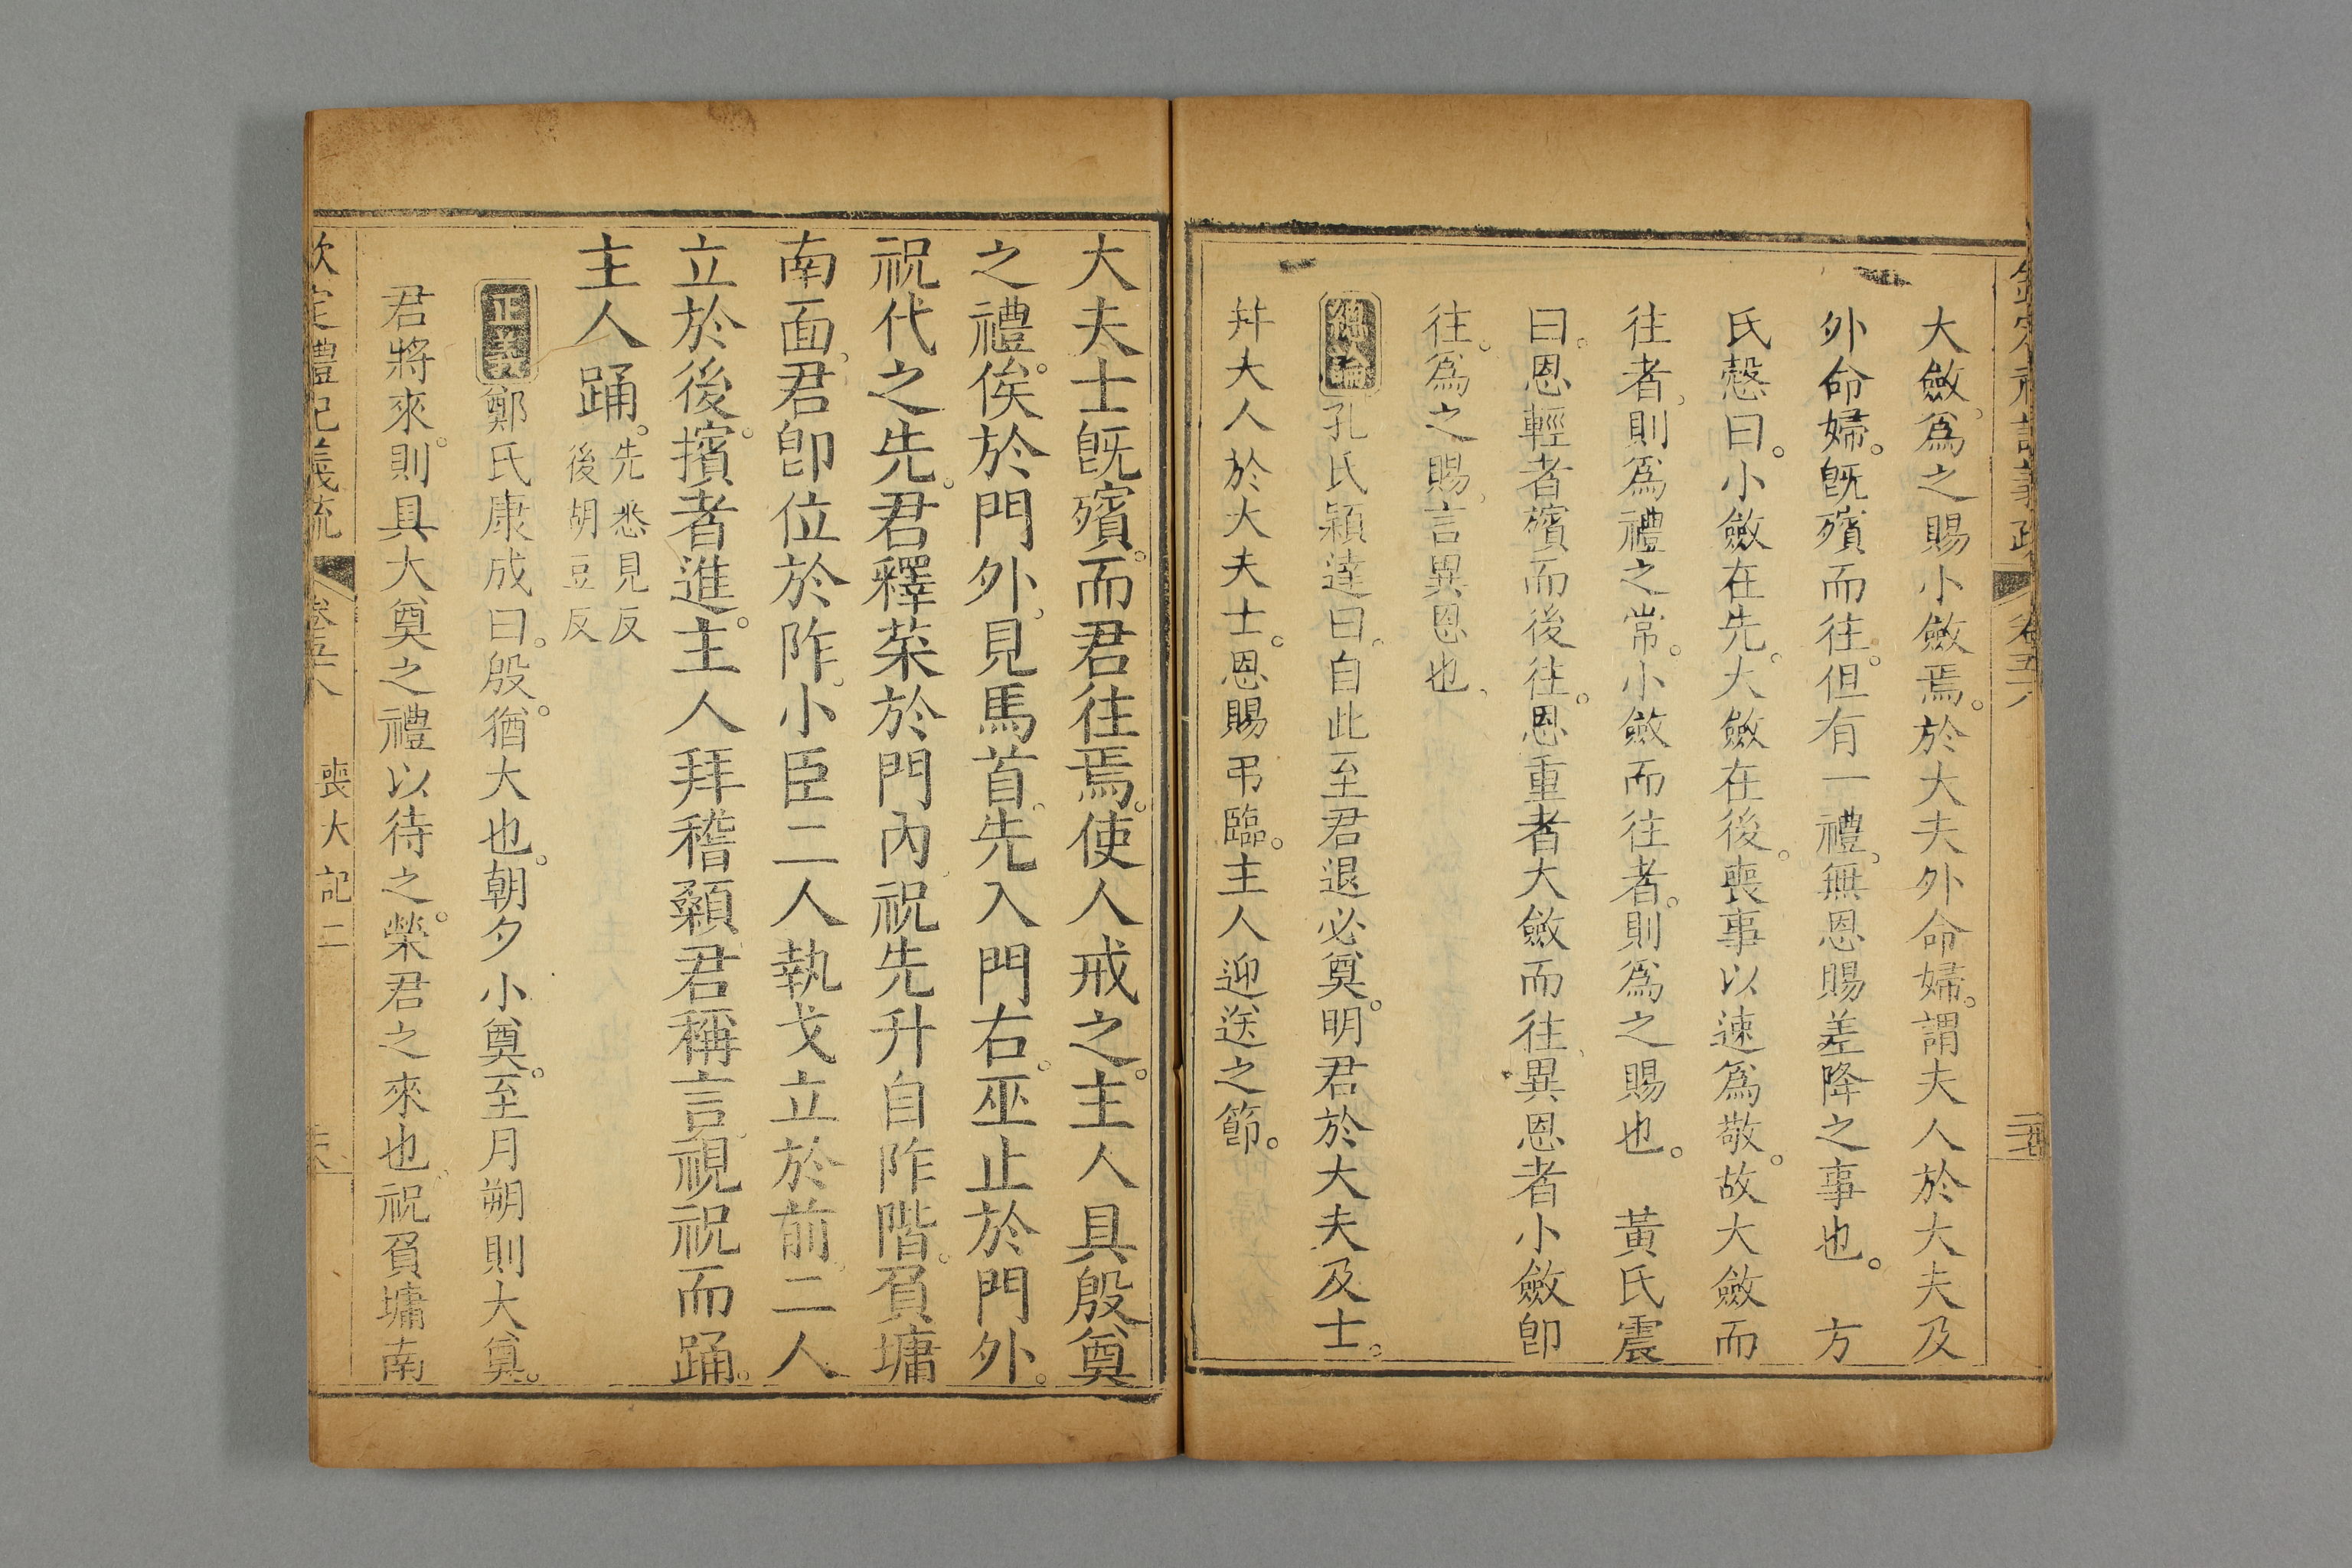 欽定禮記義疏 卷五十八
大斂、爲之賜小斂焉。於大夫外命婦。謂夫人於大夫及
外命婦。旣殯而往。但有一禮。無恩賜差降之事也。 方
氏慤曰。小斂在先。大斂在後。喪事以速爲敬。故大斂而
往者、則爲禮之常。小斂而往者。則爲之賜也。 黃氏震
曰。恩輕者殯而後往。恩重者大斂而往、異恩者小斂卽
往。爲之賜、言異恩也、
總論孔氏穎達曰。自此至君退必奠。明君於大夫及士。
幷夫人於大夫士。恩賜弔臨。主人迎送之節。
大夫士旣殯。而君往焉。使人戒之。主人具殷奠
之禮。俟於門外、見馬首。先入門右。巫止於門外。
祝代之先。君釋菜於門內、祝先升自阼階。負墉
南面、君卽位於阼。小臣二人執戈立於前、二人
立於後。擯者進。主人拜稽顙君稱言、視祝而踊。
主人踊。先悉見反 後胡豆反
正義鄭氏康成曰。殷。猶大也。朝夕小奠。至月朔則大奠。
君將來。則具大奠之禮以待之。榮君之來也、祝負墉南
欽定禮記義疏 卷五十八 喪大記二